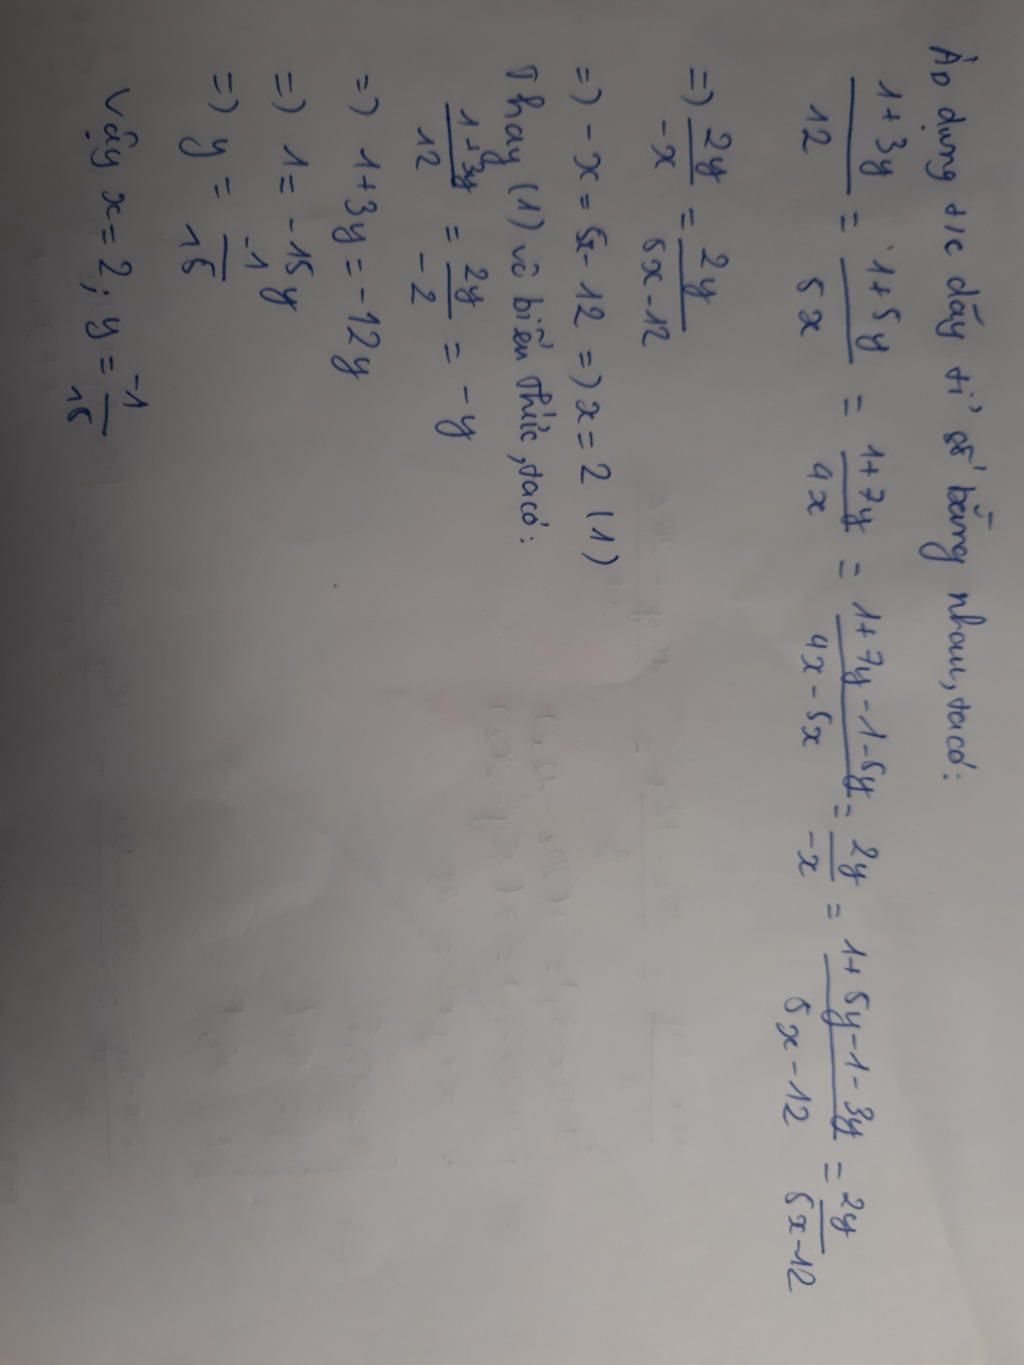 Áp dụng t/c dãy tỉ số bằng nhau, ta có:
1+3y/12 = 1+5y/5x = 1+7y/4x = 1+7y-1-5y/4x-5x = 2y/-x = 1+5y-1-3y/5x-12 = 2y/5x-12
=) 2y/-x = 2y/5x-12
=) -x = 5x-12 =) x = 2 (1)
Thay (1) vô biển thức, ta có:
1+3y/12 = 2y/-2 = -y
=) 1+3y = -12y
=) 1 = -15y
=) y = -1/15
Vậy x = 2; y = -1/15